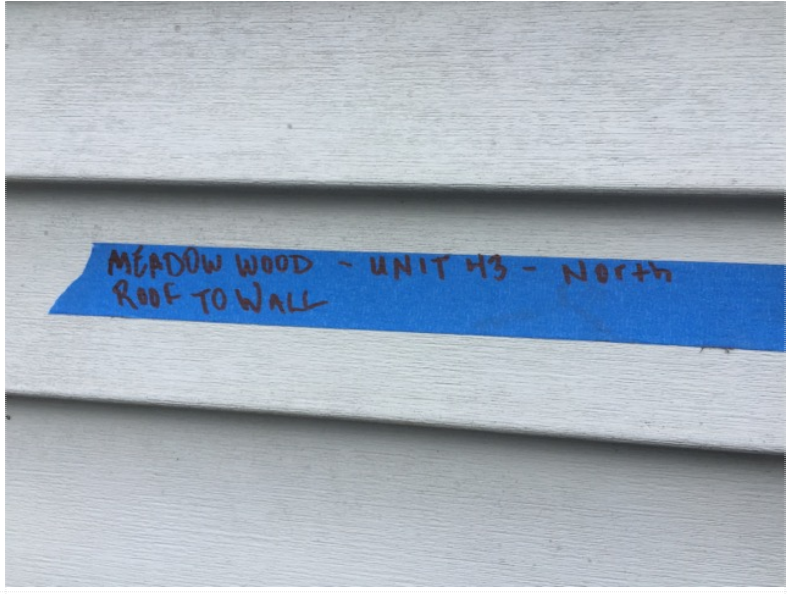 MEADOW WOOD - UNIT 43 - North
ROOF TO WALL